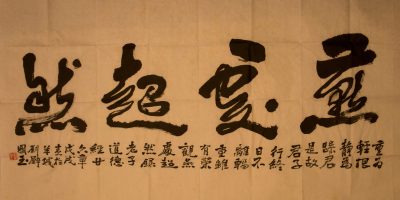 燕處超然
重为
轻根
静為
躁君
是故
君子
行終
日不
離輜
重雖
有榮
觀燕
處超
然録
老子
道德
經廿
六章
戊戌
羊城
國玉